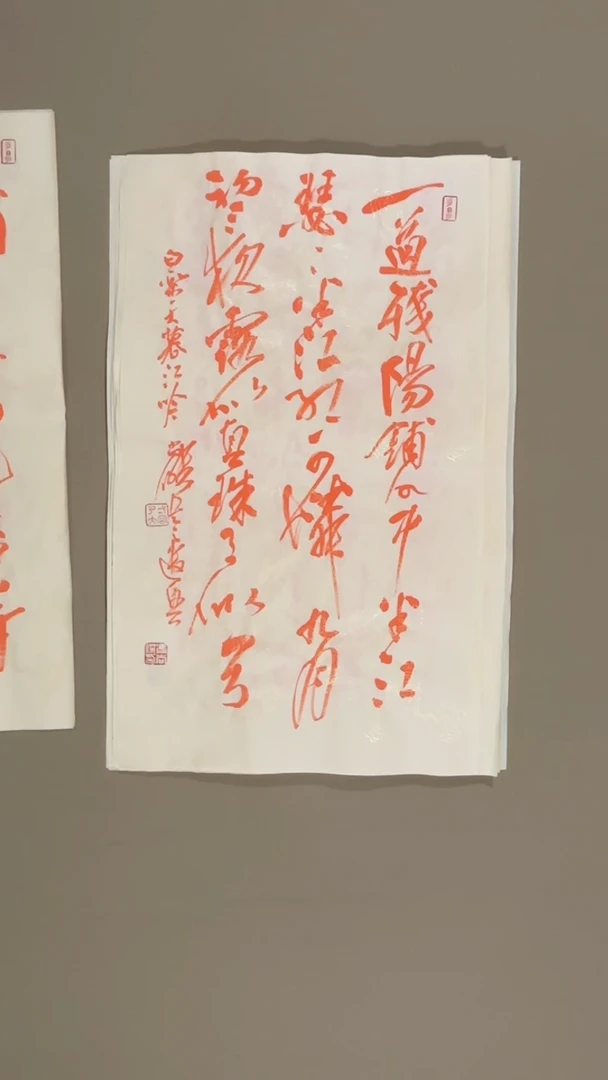 一道殘陽鋪水中半江
瑟〻半江紅可憐九月
初三夜露似真珠月似弓
白樂天暮江吟